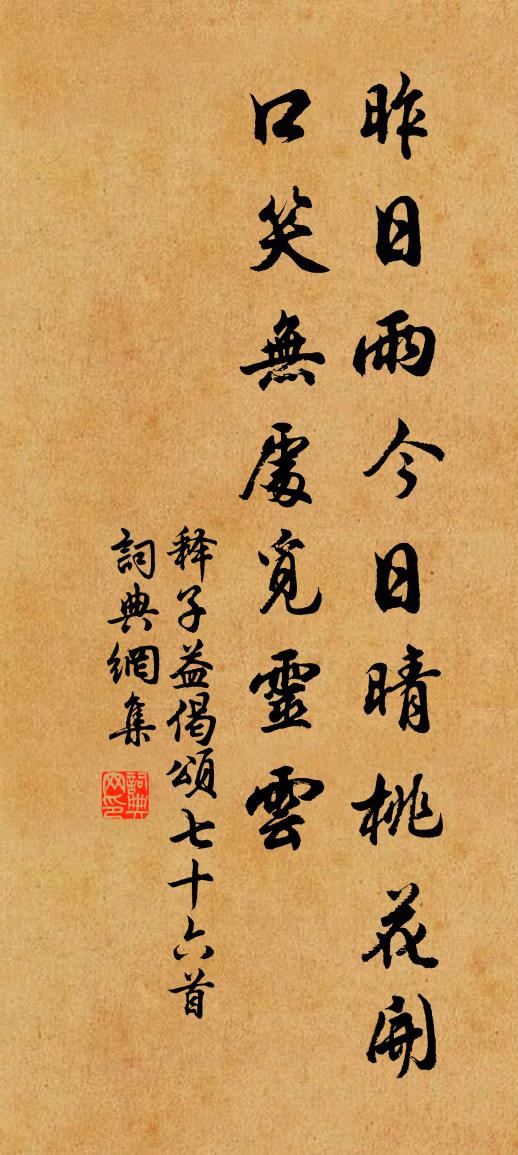 昨日雨今日晴桃花開
口笑無處覓靈雲
释子益偈頌七十六首
詞典網集
詞典网印